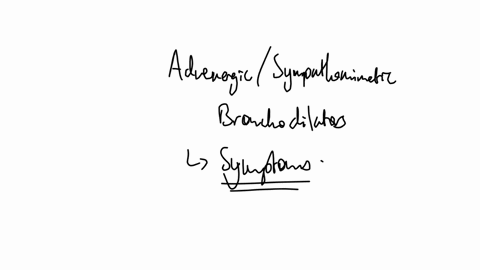 Adrenergic/Sympathomimetic
Bronchodilators
↳ Symptoms.